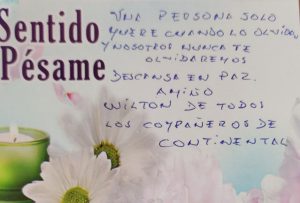 Sentido
Pésame
UNA PERSONA SOLO
MUERE CUANDO LO OLVIDAN
Y NOSOTROS NUNCA TE
OLVIDAREMOS
DESCANSA EN PAZ.
AMIGO
WILTON DE TODOS
LOS COMPAÑEROS DE
CONTINENTAL